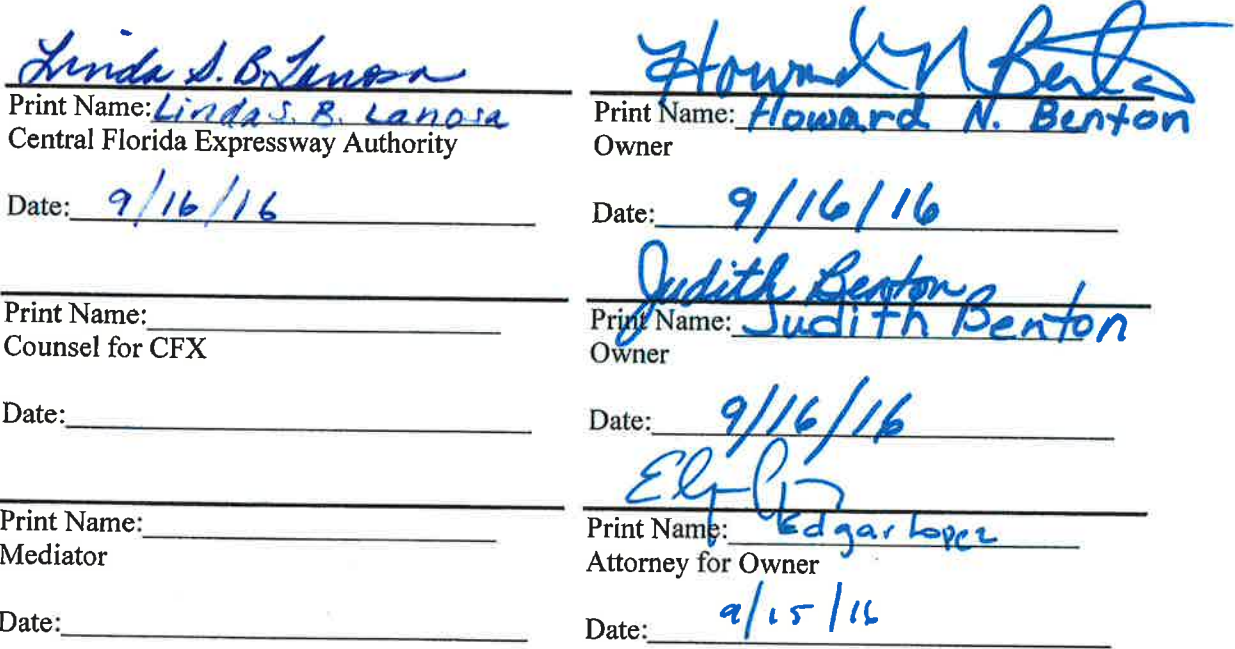 Linda S. B. Lanosa
Print Name: Linda S. B. Lanosa
Central Florida Expressway Authority
Date: 9/16/16
Print Name:
Counsel for CFX
Date:
Print Name:
Mediator
Date:
Howard N Benton
Print Name: Howard N. Benton
Owner
Date: 9/16/16
Judith Benton
Print Name: Judith Benton
Owner
Date: 9/16/16
Print Name: Edgar Lopez
Attorney for Owner
Date: 9/15/16